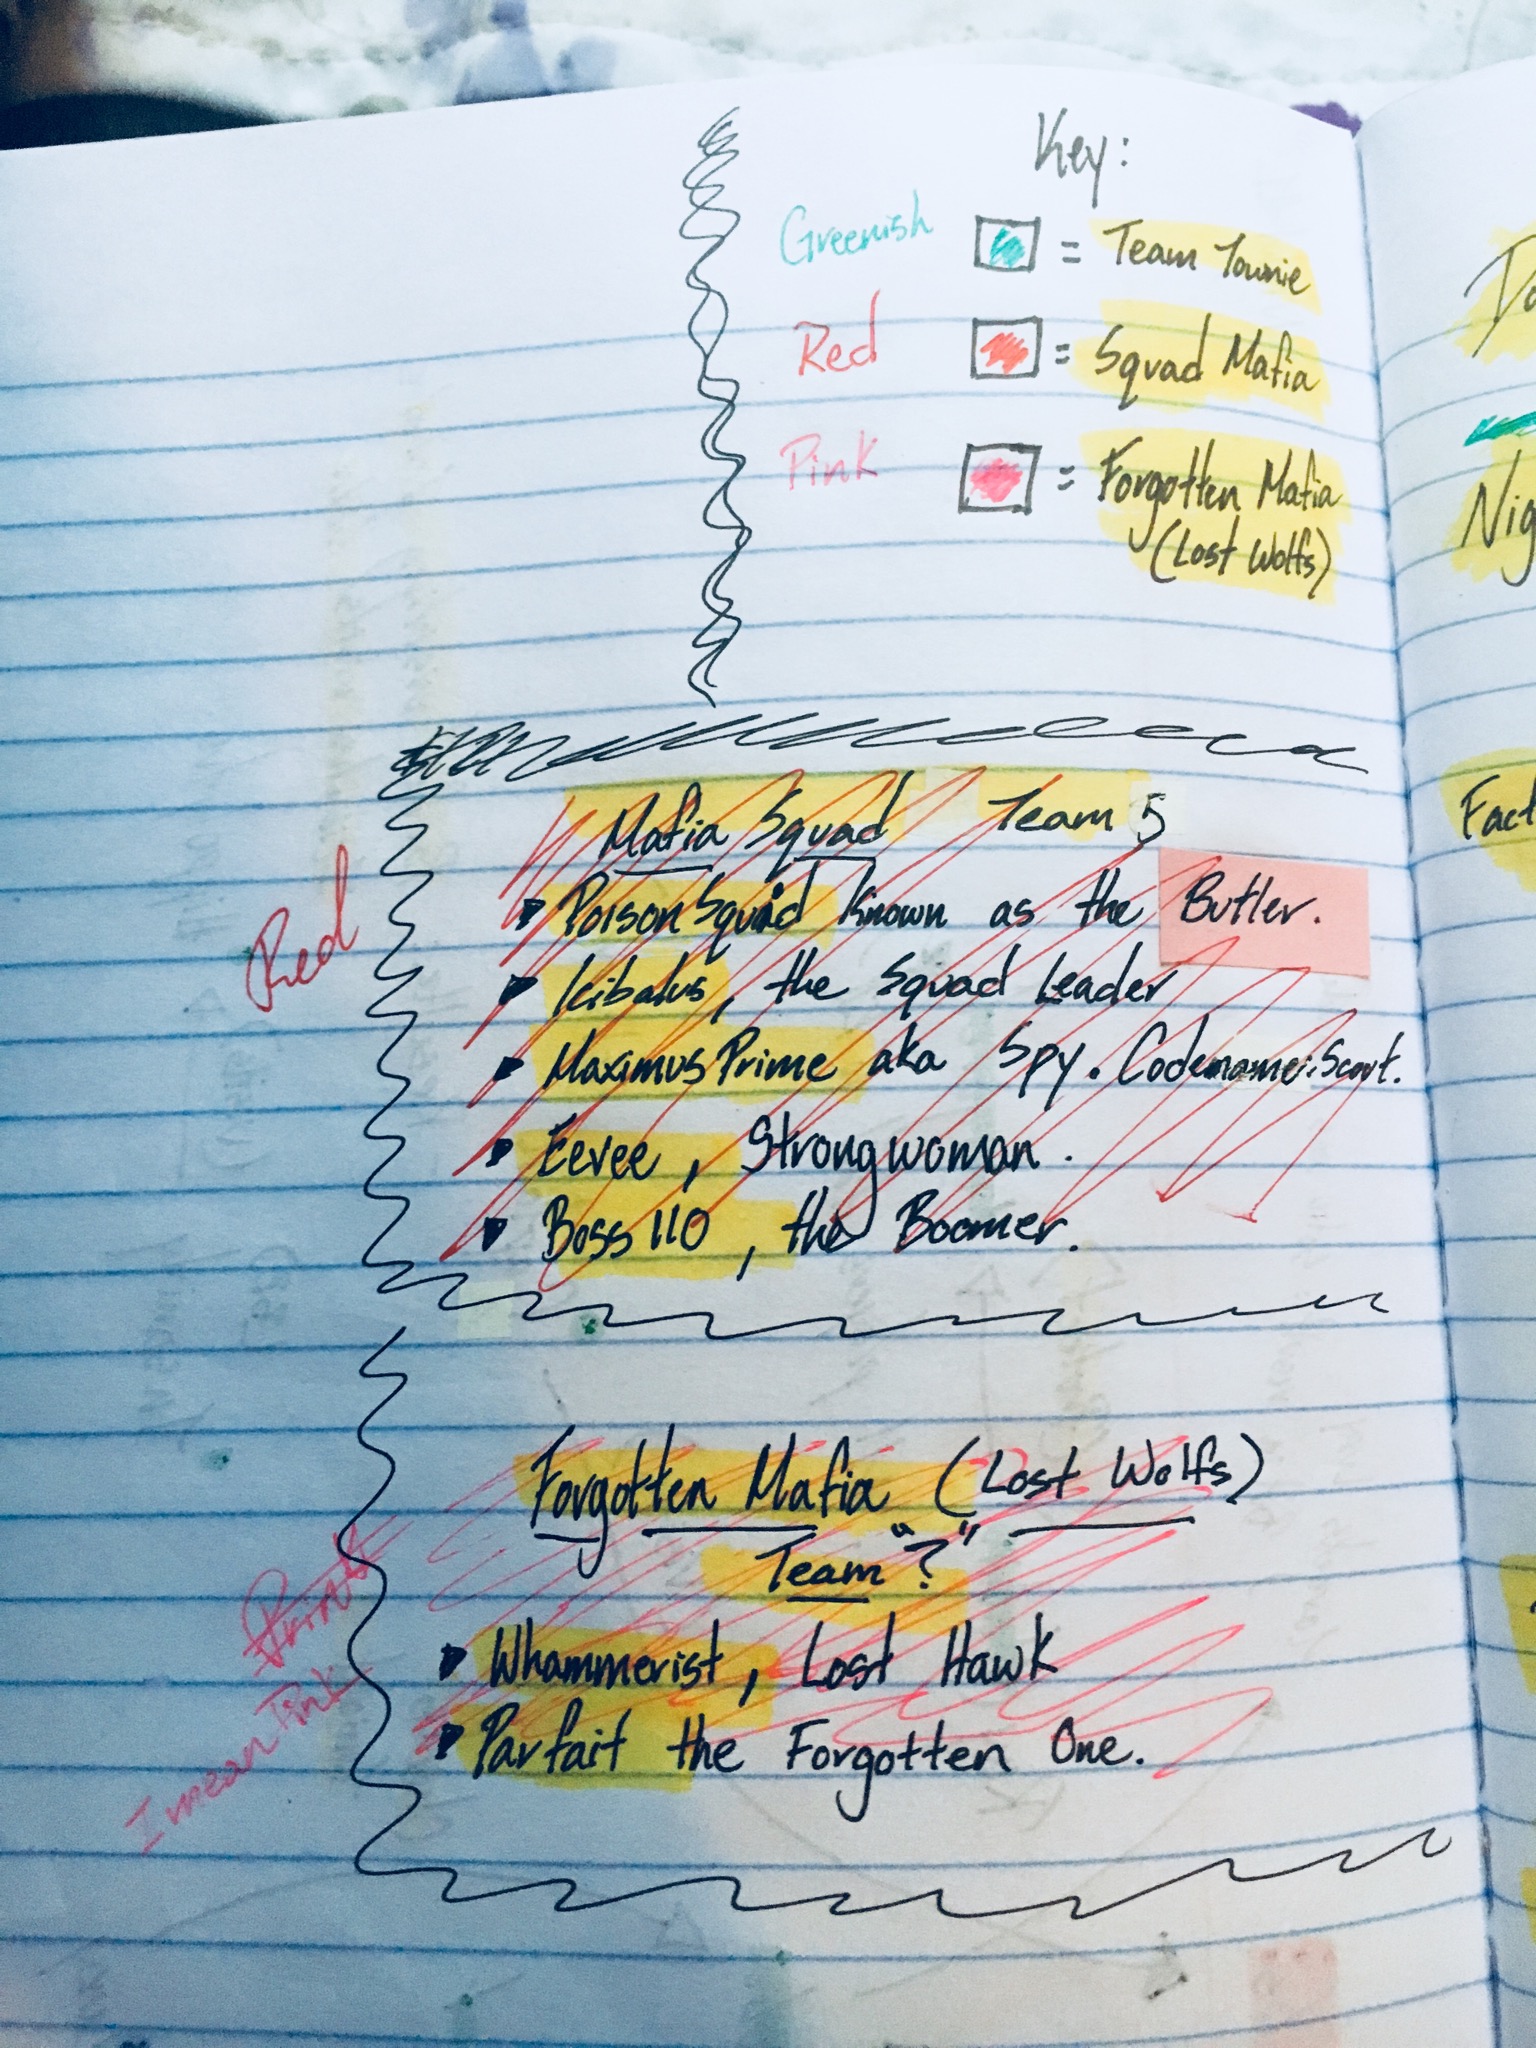 Key:
Greenish = Team Townie
Red = Squad Mafia
Pink = Forgotten Mafia
(Lost Wolfs)
Mafia Squad Team 5
Red
PoisonSquid known as the Butler.
Icibalus, the Squad Leader
MaximusPrime aka Spy. Codename: Scout.
Eevee, Strongwoman.
Boss110, the Boomer.
Forgotten Mafia (Lost Wolfs)
Team "?"
Whammerist, Lost Hawk
I mean Pink
Parfait the Forgotten One.
Fact